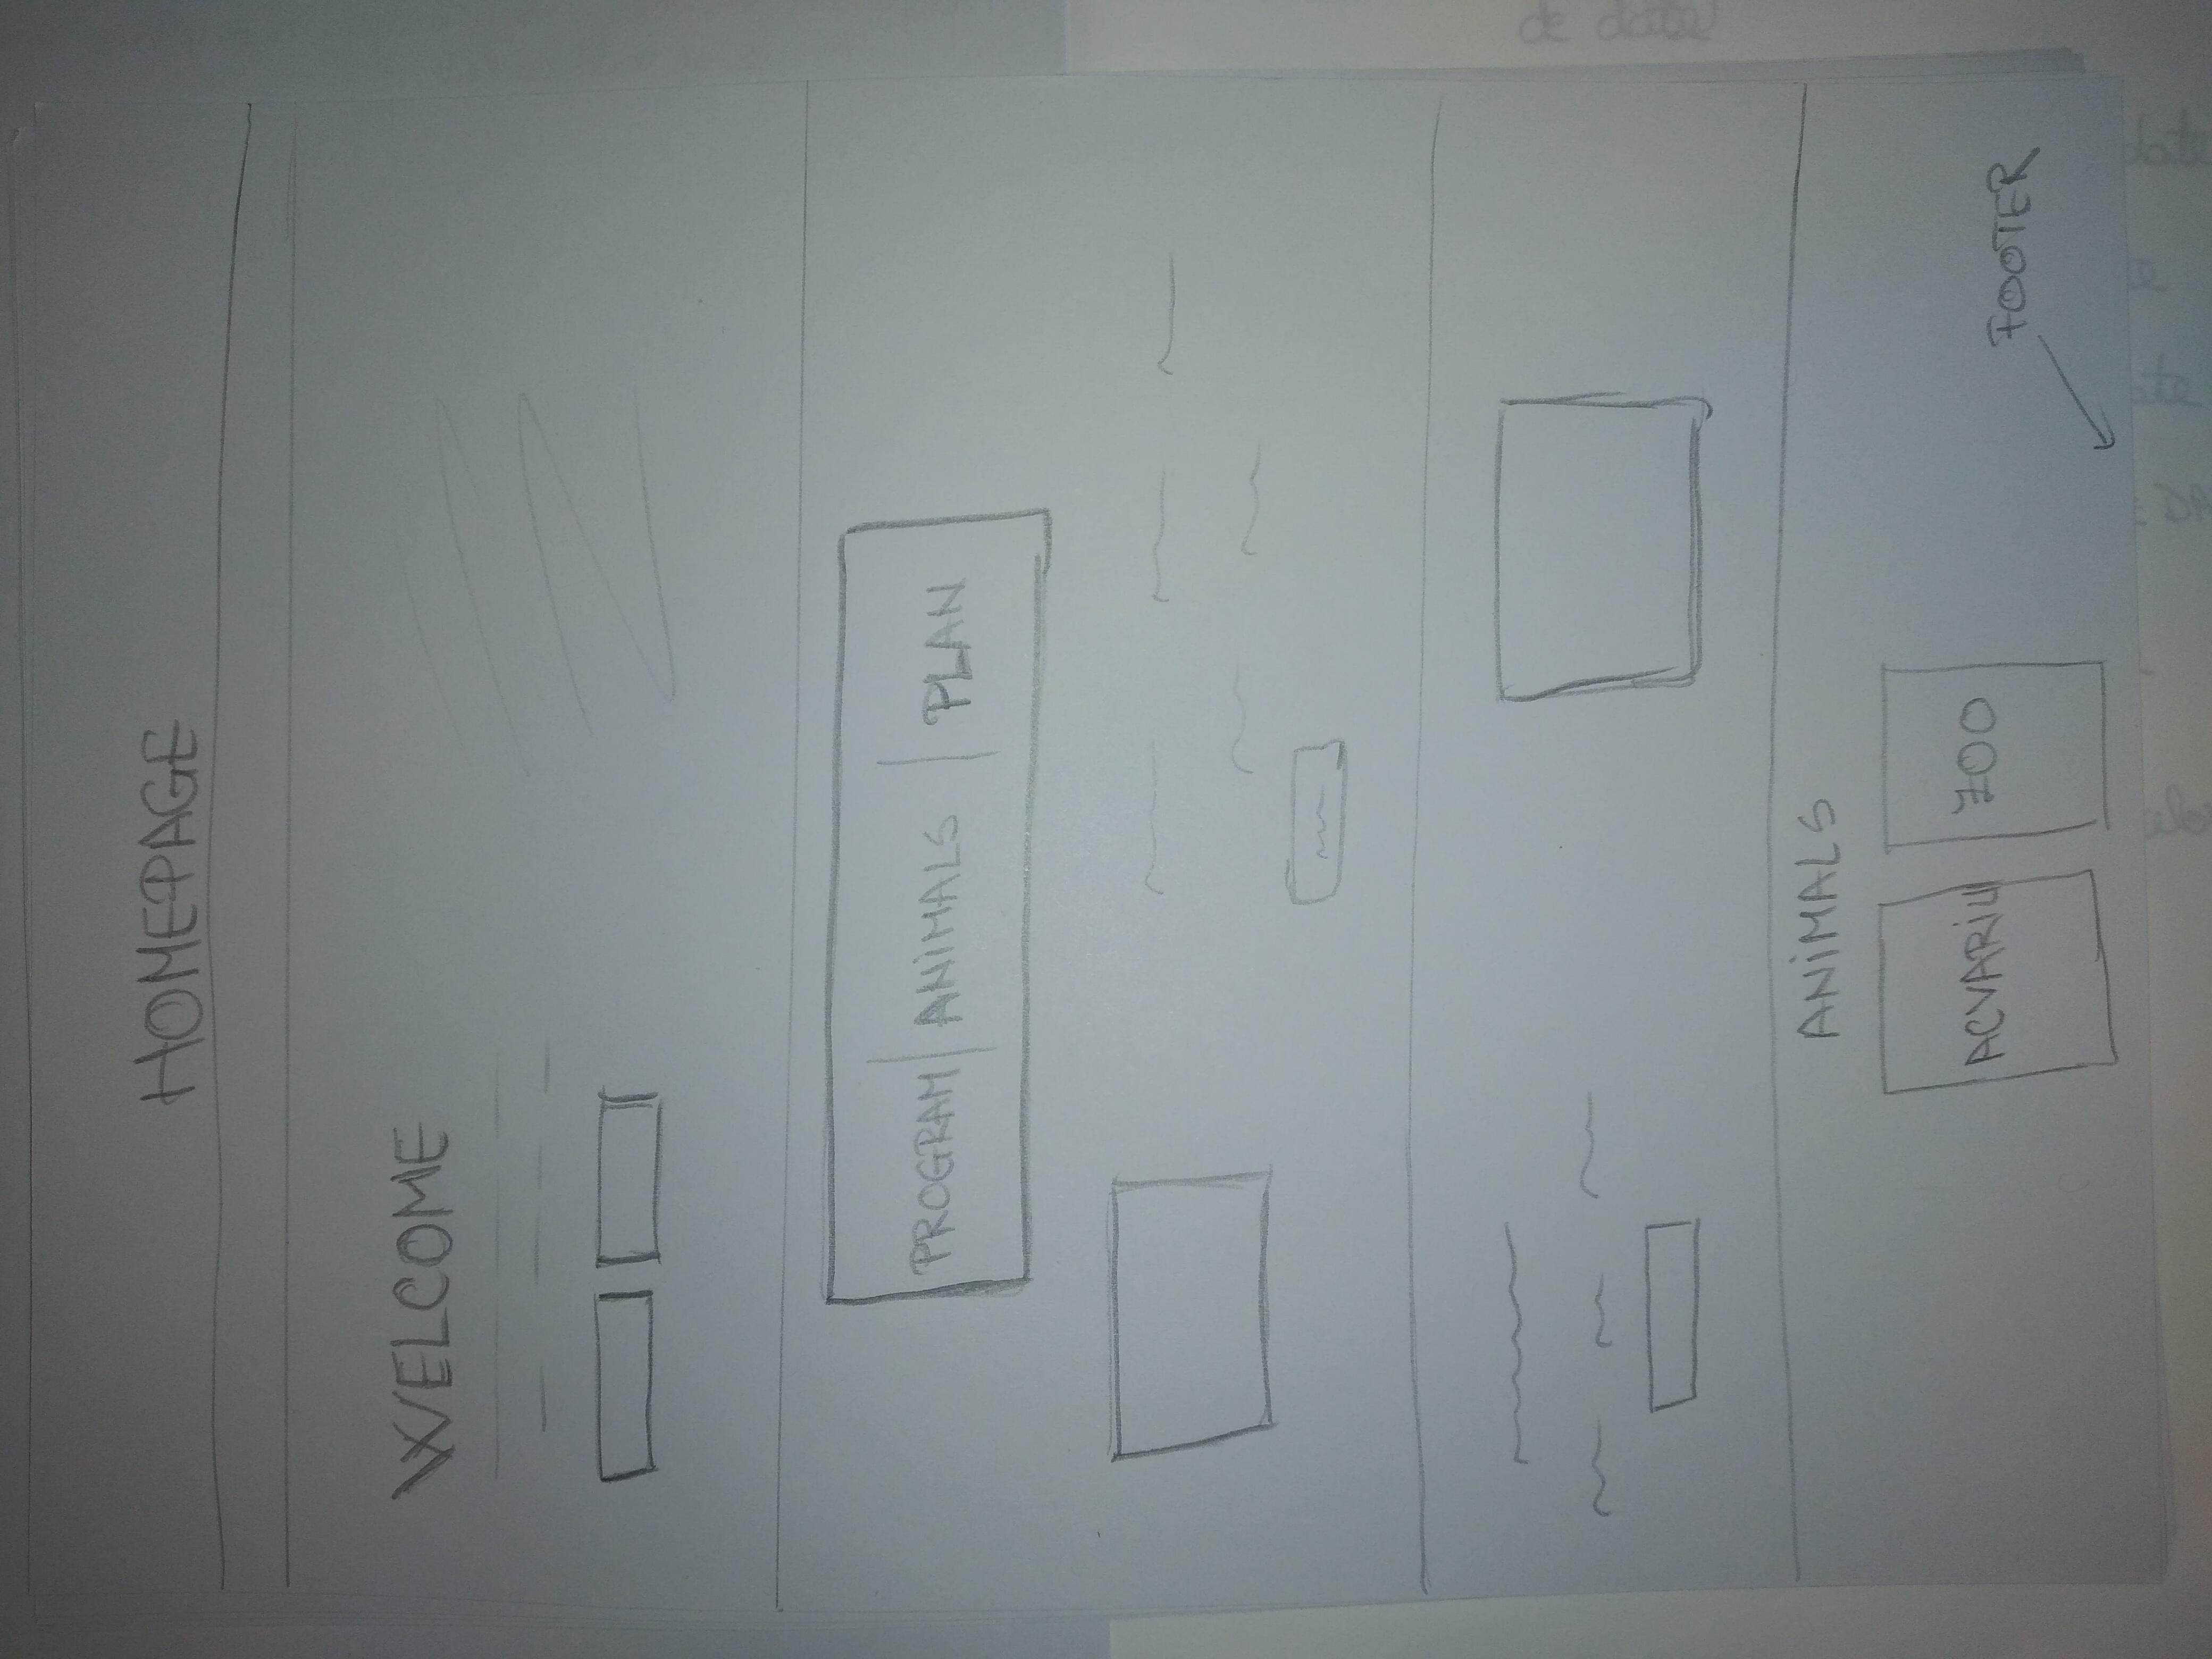 HOMEPAGE
WELCOME
PROGRAM ANiMALS PLAN
ANiMALS
ACVARiU ZOO
FOOTER
de date